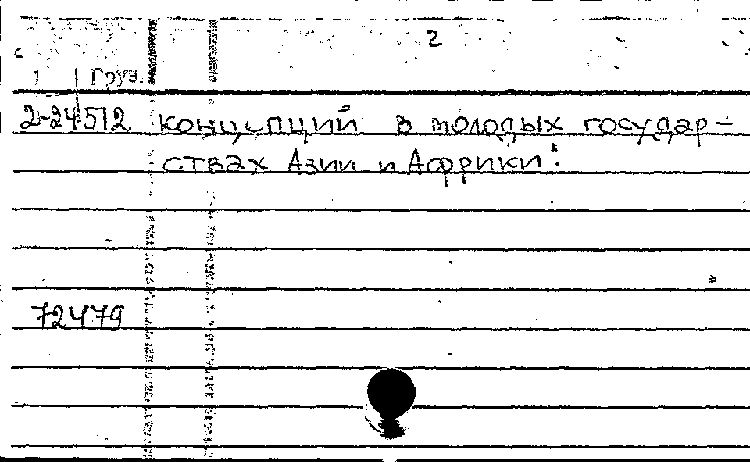 2
1 Груз.
2-24512 концепций в молодых государ-
ствах Азии и Африки.
72479